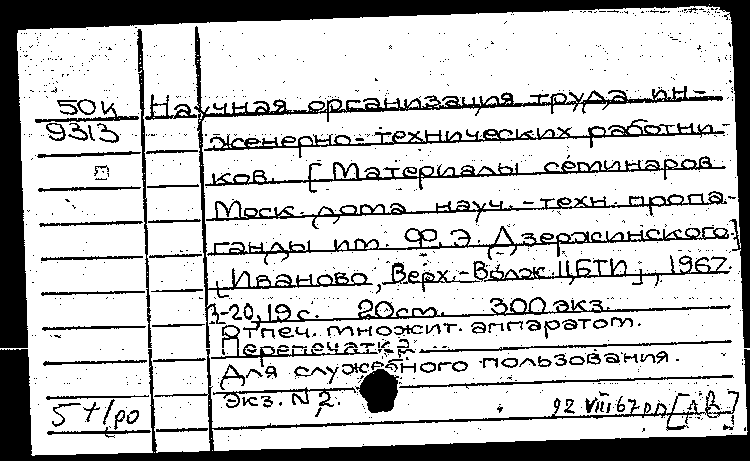 50к Научная организация труда ин-
9313 женерно-технических работни-
ков. [Материалы семинаров
Моск. дома науч.-техн. пропа-
ганды им. Ф.Э. Дзержинского]
[Иваново, Верх.-Волж. ЦБТИ], 1967.
3-20,19 с. 20 см. 300 экз.
Отпеч. множит. аппаратом.
Перепечатка.
Для служебного пользования.
Экз. N 2.
VIII 67 [АВ]